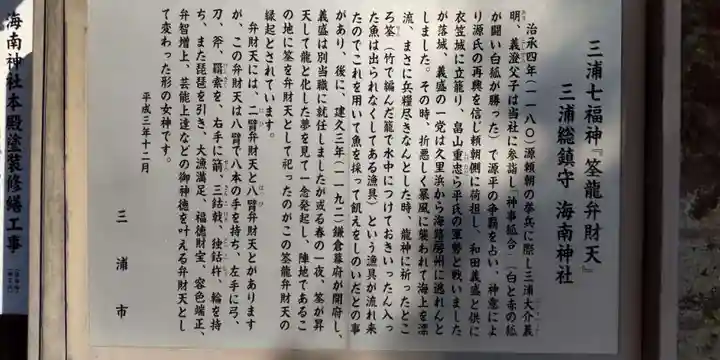 三浦七福神『筌龍弁財天』
三浦総鎮守 海南神社
治承四年(一一八〇)源頼朝の挙兵に際し三浦大介義
明、義澄父子は当社に参詣し『神事狐合』(白と赤の狐
が闘い白狐が勝った)で源平の争覇を占い、神意によ
り源氏の再興を信じ頼朝側に荷担し、和田義盛と供に
衣笠城に立籠り、畠山重忠ら平氏の軍勢と戦いました
が落城、義盛の一党は久里浜から海路房州に逃れんと
しました。その時、折悪しく暴風に襲われて海上を漂
流、まさに兵糧尽きなんとした時、龍神に祈ったとこ
ろ筌(竹で編んだ籠で水中につけておきいったん入っ
た魚は出られなくしてある漁具)という漁具が流れ来
たのでこれを用いて魚を採って飢えをしのいだとの事
があり、後に、建久三年(一一九二)鎌倉幕府が開府し、
義盛は別当職に就任しましたが或る春の一夜、筌が昇
天して龍と化した夢を見て一念発起し、陣地であるこ
の地に筌を弁財天として祀ったのがこの筌龍弁財天の
縁起とされています。
弁財天には、二臂弁財天と八臂弁財天とがあります
が、この弁財天は八臂で八本の手を持ち、左手に弓、
刀、斧、羂索を、右手に箭、三鈷戟、独鈷杵、輪を持
ち、また琵琶を引き、大漁満足、福徳財宝、容色端正、
弁智増上、芸能上達などの御神徳を叶える弁財天とし
て変わった形の女神です。
平成三年十二月
三浦市
海南神社本殿塗装修繕工事